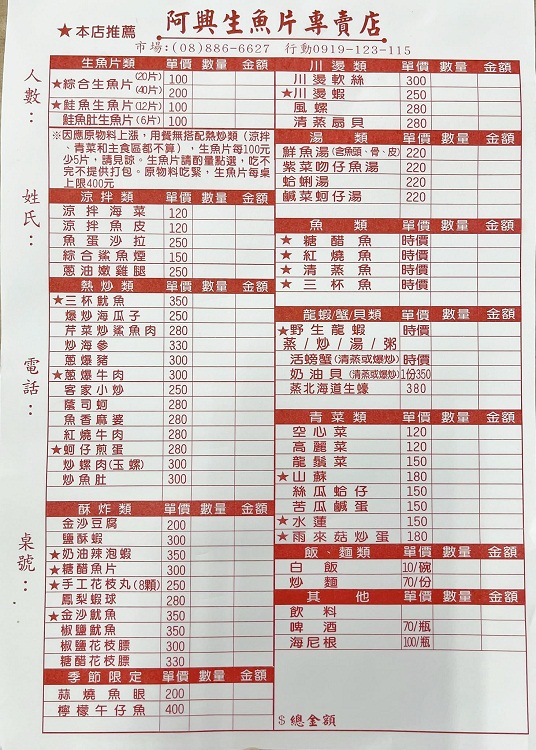 ★本店推薦 阿興生魚片專賣店
市場:(08)886-6627 行動0919-123-115
人數：
姓氏：
電話：
桌號：
生魚片類 單價 數量 金額
★綜合生魚片(20片) 100
(40片) 200
★鮭魚生魚片(12片) 100
鮭魚肚生魚片(6片) 100
※因應原物料上漲，用餐無搭配熱炒類（涼拌
、青菜和主食區都不算），生魚片每100元
少5片，請見諒。生魚片請酌量點選，吃不
完不提供打包。原物料吃緊，生魚片每桌
上限400元
涼拌類 單價 數量 金額
涼拌海菜 120
涼拌魚皮 120
魚蛋沙拉 250
綜合鯊魚煙 150
蔥油嫩雞腿 250
熱炒類 單價 數量 金額
★三杯魷魚 350
爆炒海瓜子 250
芹菜炒鯊魚肉 280
炒海參 330
蔥爆豬 300
★蔥爆牛肉 300
客家小炒 250
蔭司蚵 280
魚香麻婆 280
紅燒牛肉 280
★蚵仔煎蛋 280
炒螺肉(玉螺) 300
炒魚肚 300
酥炸類 單價 數量 金額
金沙豆腐 200
鹽酥蝦 300
★奶油辣泡蝦 350
★糖醋魚片 300
★手工花枝丸(8顆) 250
鳳梨蝦球 280
★金沙魷魚 350
椒鹽魷魚 350
椒鹽花枝膘 300
糖醋花枝膘 330
季節限定 單價 數量 金額
蒜燒魚眼 200
檸檬午仔魚 400
川燙類 單價 數量 金額
川燙軟絲 300
★川燙蝦 250
風螺 280
清蒸扇貝 280
湯類 單價 數量 金額
鮮魚湯(含魚頭、骨、皮) 220
紫菜吻仔魚湯 220
蛤蜊湯 220
鹹菜蚵仔湯 220
魚類 單價 數量 金額
★糖醋魚 時價
★紅燒魚 時價
★清蒸魚 時價
★三杯魚 時價
龍蝦/蟹/貝類 單價 數量 金額
★野生龍蝦 時價
蒸/炒/湯/粥
活螃蟹(清蒸或爆炒) 時價
奶油貝(清蒸或爆炒) 1份350
蒸北海道生蠔 380
青菜類 單價 數量 金額
空心菜 120
高麗菜 120
龍鬚菜 150
★山蘇 180
絲瓜蛤仔 150
苦瓜鹹蛋 150
★水蓮 150
★雨來菇炒蛋 180
飯、麵類 單價 數量 金額
白飯 10/碗
炒麵 70/份
其他 單價 數量 金額
飲料
啤酒 70/瓶
海尼根 100/瓶
$總金額